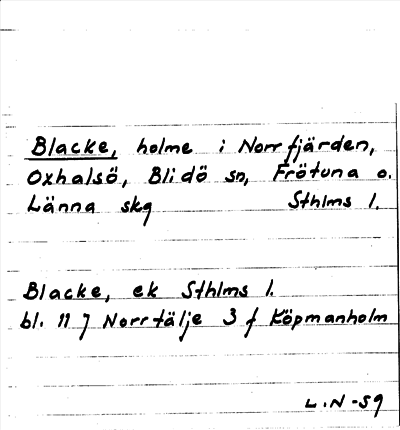 Blacke, holme i Norrfjärden,
Oxhalsö, Blidö sn, Frötuna o.
Länna skg Sthlms l.
Blacke, ek Sthlms l.
bl. 11 7 Norrtälje 3 f Köpmanholm
L.N-59